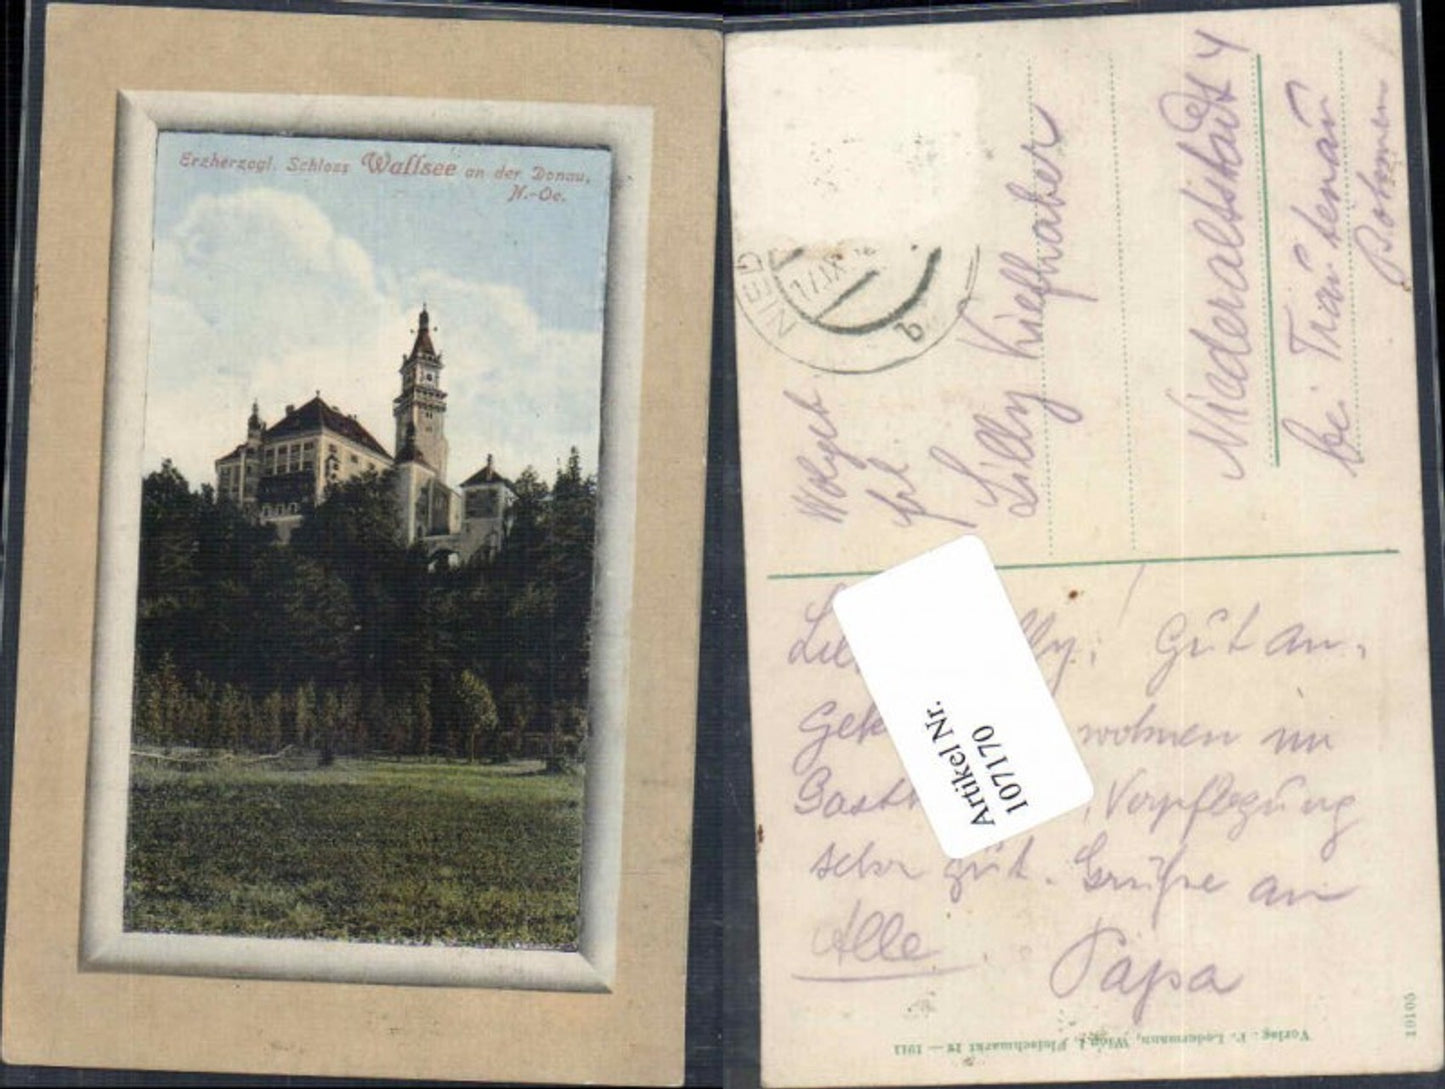 Erzherzogl. Schloss Wallsee an der Donau,
N.-Oe.
NIED
XII
b
Wolgeb
Frl
Lilly Kiefhaber
Niederaltstadt 4
bei Trautenau
Böhmen
Gut an-
wohnen im
Verpflegung
sehr gut. Grüße an
Alle
Papa
Artikel Nr.
107170
Verlag. P. Ledermann, Wien I. Fleischmarkt 12 — 1911
10105